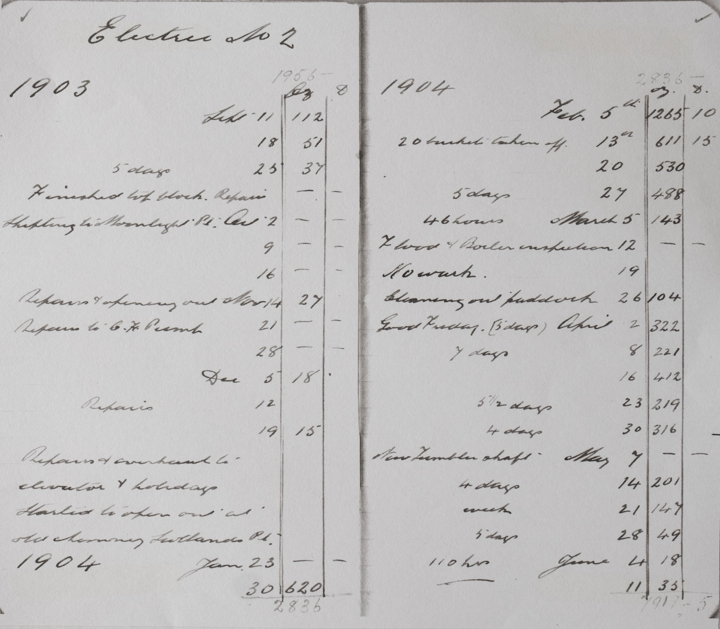 Electric No 2
1956 –
1903 Oz D
Sept 11 112
18 51
5 days 25 37
Finished top block. Repairs – –
Shifting to Moonlight Pt. Oct 2 – –
9 – –
16 – –
Repairs & opening out Nov 14 27
Repairs to C.F. Pump 21 – –
28 – –
Dec 5 18
Repairs 12
19 15
Repairs & overhaul to
elevator & holidays
Started to open out at
old chimney Lutlands Pt.
1904 Jan. 23 – –
30 620
2836
2836 –
1904 oz. D.
Feb. 5th 1265 10
20 buckets taken off. 13th 611 15
20 530
5 days 27 488
46 hours March 5 143
Flood & Boiler inspection 12 – –
No work. 19
Cleaning out paddock 26 104
Good Friday. (5 days) April 2 322
7 days 8 221
16 412
5 1/2 days 23 219
4 days 30 316
New Tumbler shaft May 7 – –
4 days 14 201
week 21 147
5 days 28 49
110 hrs June 4 18
11 35
7917 – 5